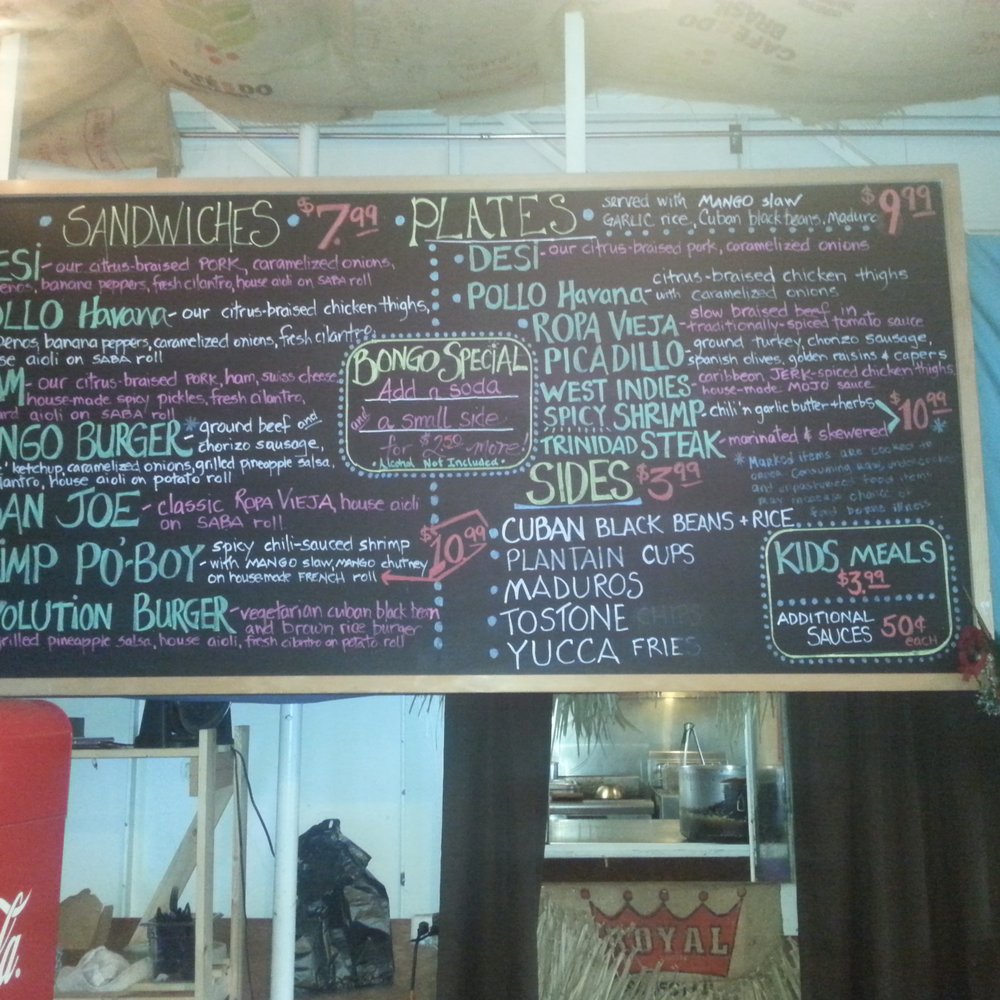 CAFE DO
BRASIL
• SANDWICHES • $7.99
ESI - our citrus-braised PORK, caramelized onions,
enos, banana peppers, fresh cilantro, house aioli on SABA roll
OLLO Havana - our citrus-braised chicken thighs,
penos, banana peppers, caramelized onions, fresh cilantro,
se aioli on SABA roll
AM - our citrus-braised PORK, ham, swiss cheese,
house-made spicy pickles, fresh cilantro,
ard aioli on SABA roll
NGO BURGER* - ground beef and
chorizo sausage,
ketchup, caramelized onions, grilled pineapple salsa,
lantro, house aioli on potato roll
AN JOE - classic ROPA VIEJA, house aioli
on SABA roll
IMP PO'BOY - spicy chili-sauced shrimp
with MANGO slaw, MANGO chutney
on housemade FRENCH roll
$10.99
OLUTION BURGER - vegetarian cuban black bean
and brown rice burger
grilled pineapple salsa, house aioli, fresh cilantro on potato roll
BONGO SPECIAL
Add a soda
and a small side
for $2.50 more!
• Alcohol Not Included •
• PLATES • served with MANGO slaw
GARLIC rice, Cuban black beans, Maduro $9.99
• DESI - our citrus-braised pork, caramelized onions
• POLLO Havana - citrus-braised chicken thighs
with caramelized onions
• ROPA VIEJA - slow braised beef in
traditionally-spiced tomato sauce
PICADILLO - ground turkey, chorizo sausage,
spanish olives, golden raisins & capers
WEST INDIES - caribbean JERK-spiced chicken thighs,
house-made MOJO sauce
SPICY SHRIMP - chili 'n garlic butter + herbs
TRINIDAD STEAK - marinated & skewered
$10.99
* Marked items are cooked to
order. Consuming raw, undercooked
and unpasteurized food items
may increase chance of
food borne illness.
SIDES $3.99
• CUBAN BLACK BEANS + RICE
• PLANTAIN CUPS
• MADUROS
• TOSTONE CHIPS
• YUCCA FRIES
KIDS MEALS
$3.99
ADDITIONAL
SAUCES 50¢
each
ROYAL